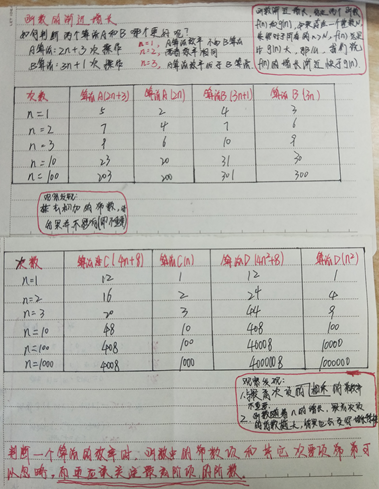 函数的渐近增长
如何判断两个算法A和B哪个更好呢?
A算法:2n+3次操作
B算法:3n+1次操作
n=1, A算法效率不如B算法
n=2, 两者效率相同
n=3, A算法效率优于B算法
函数渐近增长:给定两个函数
f(n)和g(n),如果存在一个整数N
使得对于所有的n>N, f(n)总是
比g(n)大,那么,我们说
f(n)的增长渐近快于g(n).
次数 算法A(2n+3) 算法A'(2n) 算法B(3n+1) 算法B'(3n)
n=1 5 2 4 3
n=2 7 4 7 6
n=3 9 6 10 9
n=10 23 20 31 30
n=100 203 200 301 300
观察发现:
次数 算法C(4n+8) 算法C'(n) 算法D(4n²+8) 算法D'(n²)
n=1 12 1 12 1
n=2 16 2 24 4
n=3 20 3 44 9
n=10 48 10 408 100
n=100 408 100 40008 10000
n=1000 4008 1000 4000008 1000000
观察发现:
1. 最高次项的相乘的常数
不重要
2. 函数随着n的增长,最高次项
判断一个算法的效率时,函数中的常数项和其他次要项常常可
以忽略,而更应该关注最高阶项的阶数.